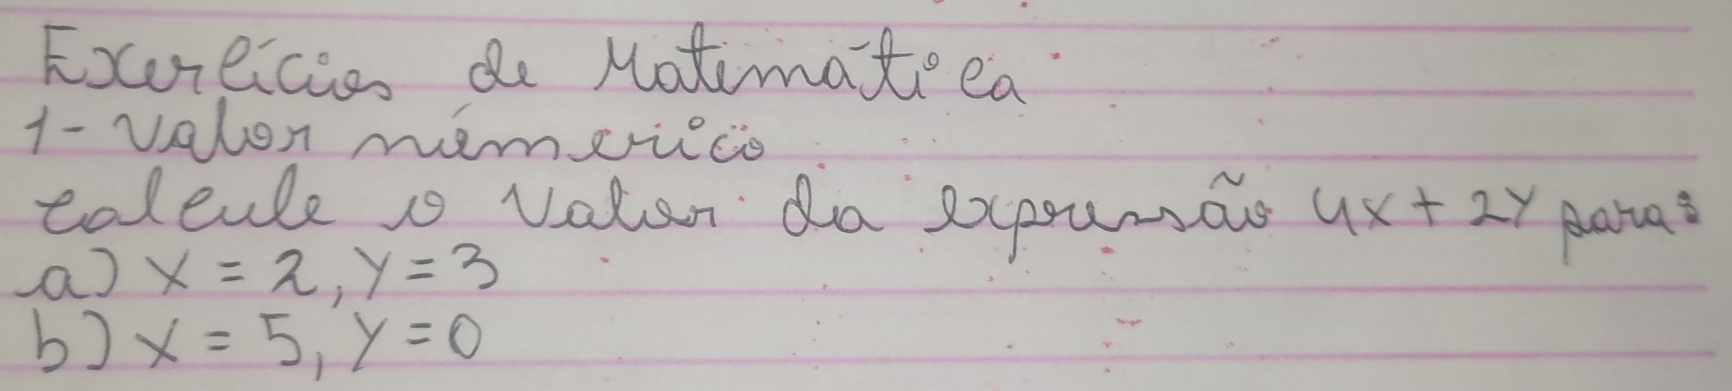 Exercícios de Matemática
1- Valor númerico
calcule o valor da expressão 4x + 2y para:
a) x = 2, y = 3
b) x = 5, y = 0